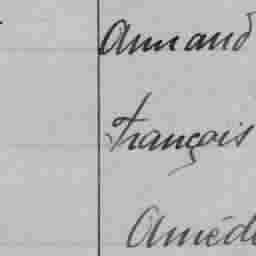 Armand
François
Amédé